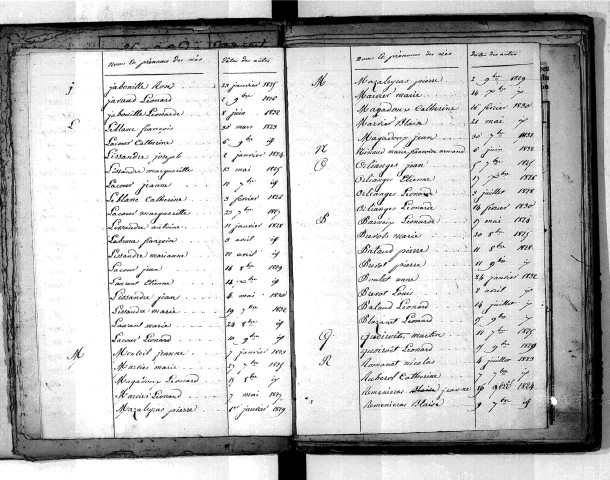 Noms et prénoms des nés Dates des actes
J jabouille Rose 29 janvier 1825
javaud Léonard 2 9bre 1826
jabouille Léonarde 8 juin 1832
L Leblanc françois 30 mars 1823
Lacour Catherine 6 9bre id
Lissandre joseph 2 janvier 1824
Lissandre marguerite 13 mai 1825
Lacour jeanne 11 7bre id
Leblanc Catherine 3 février 1826
Lacour marguerite 23 7bre 1827
Lissandre antoine 11 janvier 1828
Lebrun françois 3 avril id
Lissandre marianne 10 avril id
Lacour jean 14 8bre 1829
Laurent Etienne 14 Xbre id
Lissandre jean 4 mai 1830
Lissandre marie 19 7bre 1832
Laurant marie 24 8bre id
Lacour Léonard 10 9bre id
M Mouleit jeanne 7 janvier 1823
Marsier marie 27 7bre 1825
Magadoux Léonard 15 8bre id
Marsier Léonard 7 mai 1827
Mazaleyras pierre 1er janvier 1829
Noms et prénoms des nés Dates des actes
M Mazaleyras pierre 2 9bre 1829
Marsier marie 24 Xbre id
Magadoux Catherine 16 février 1830
Marsier Blaise 21 mai id
Magadoux jean 30 9bre 1831
N Ninaud marie 6 juin 1832
O Orliangès jean 5 7bre 1825
Orliangès Etienne 17 Xbre 1826
Orliangès Léonard 3 juillet 1828
Orliangès Léonard 14 février 1830
B Léonarde 17 mai 1824
marie 20 8bre 1825
Balaud pierre 11 8bre 1828
pierre 11 9bre id
Boulet anne 24 janvier 1832
Louis 2 avril id
Balaud Léonard 14 juillet id
Blazant Léonard 17 9bre id
Q Quoiroit martin 10 7bre 1825
Quoiroit Léonard 15 9bre 1829
R nicolas 4 juillet 1823
Auberol Catherine 7 7bre id
Remenieras jeanne avril 1824
Remenieras Blaise 9 7bre id